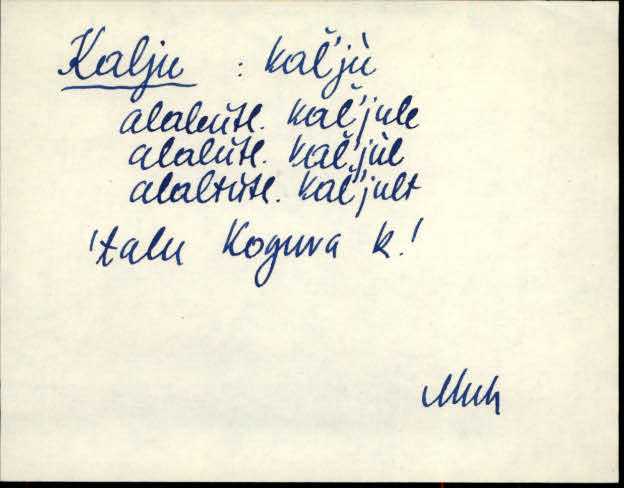 Kalju : kal̆'jù
alaleütl. kal̆'jule
alalütl. kal̆'jùl
alaltütl. kal̆'jult
'talu Koguva k.'
Muh